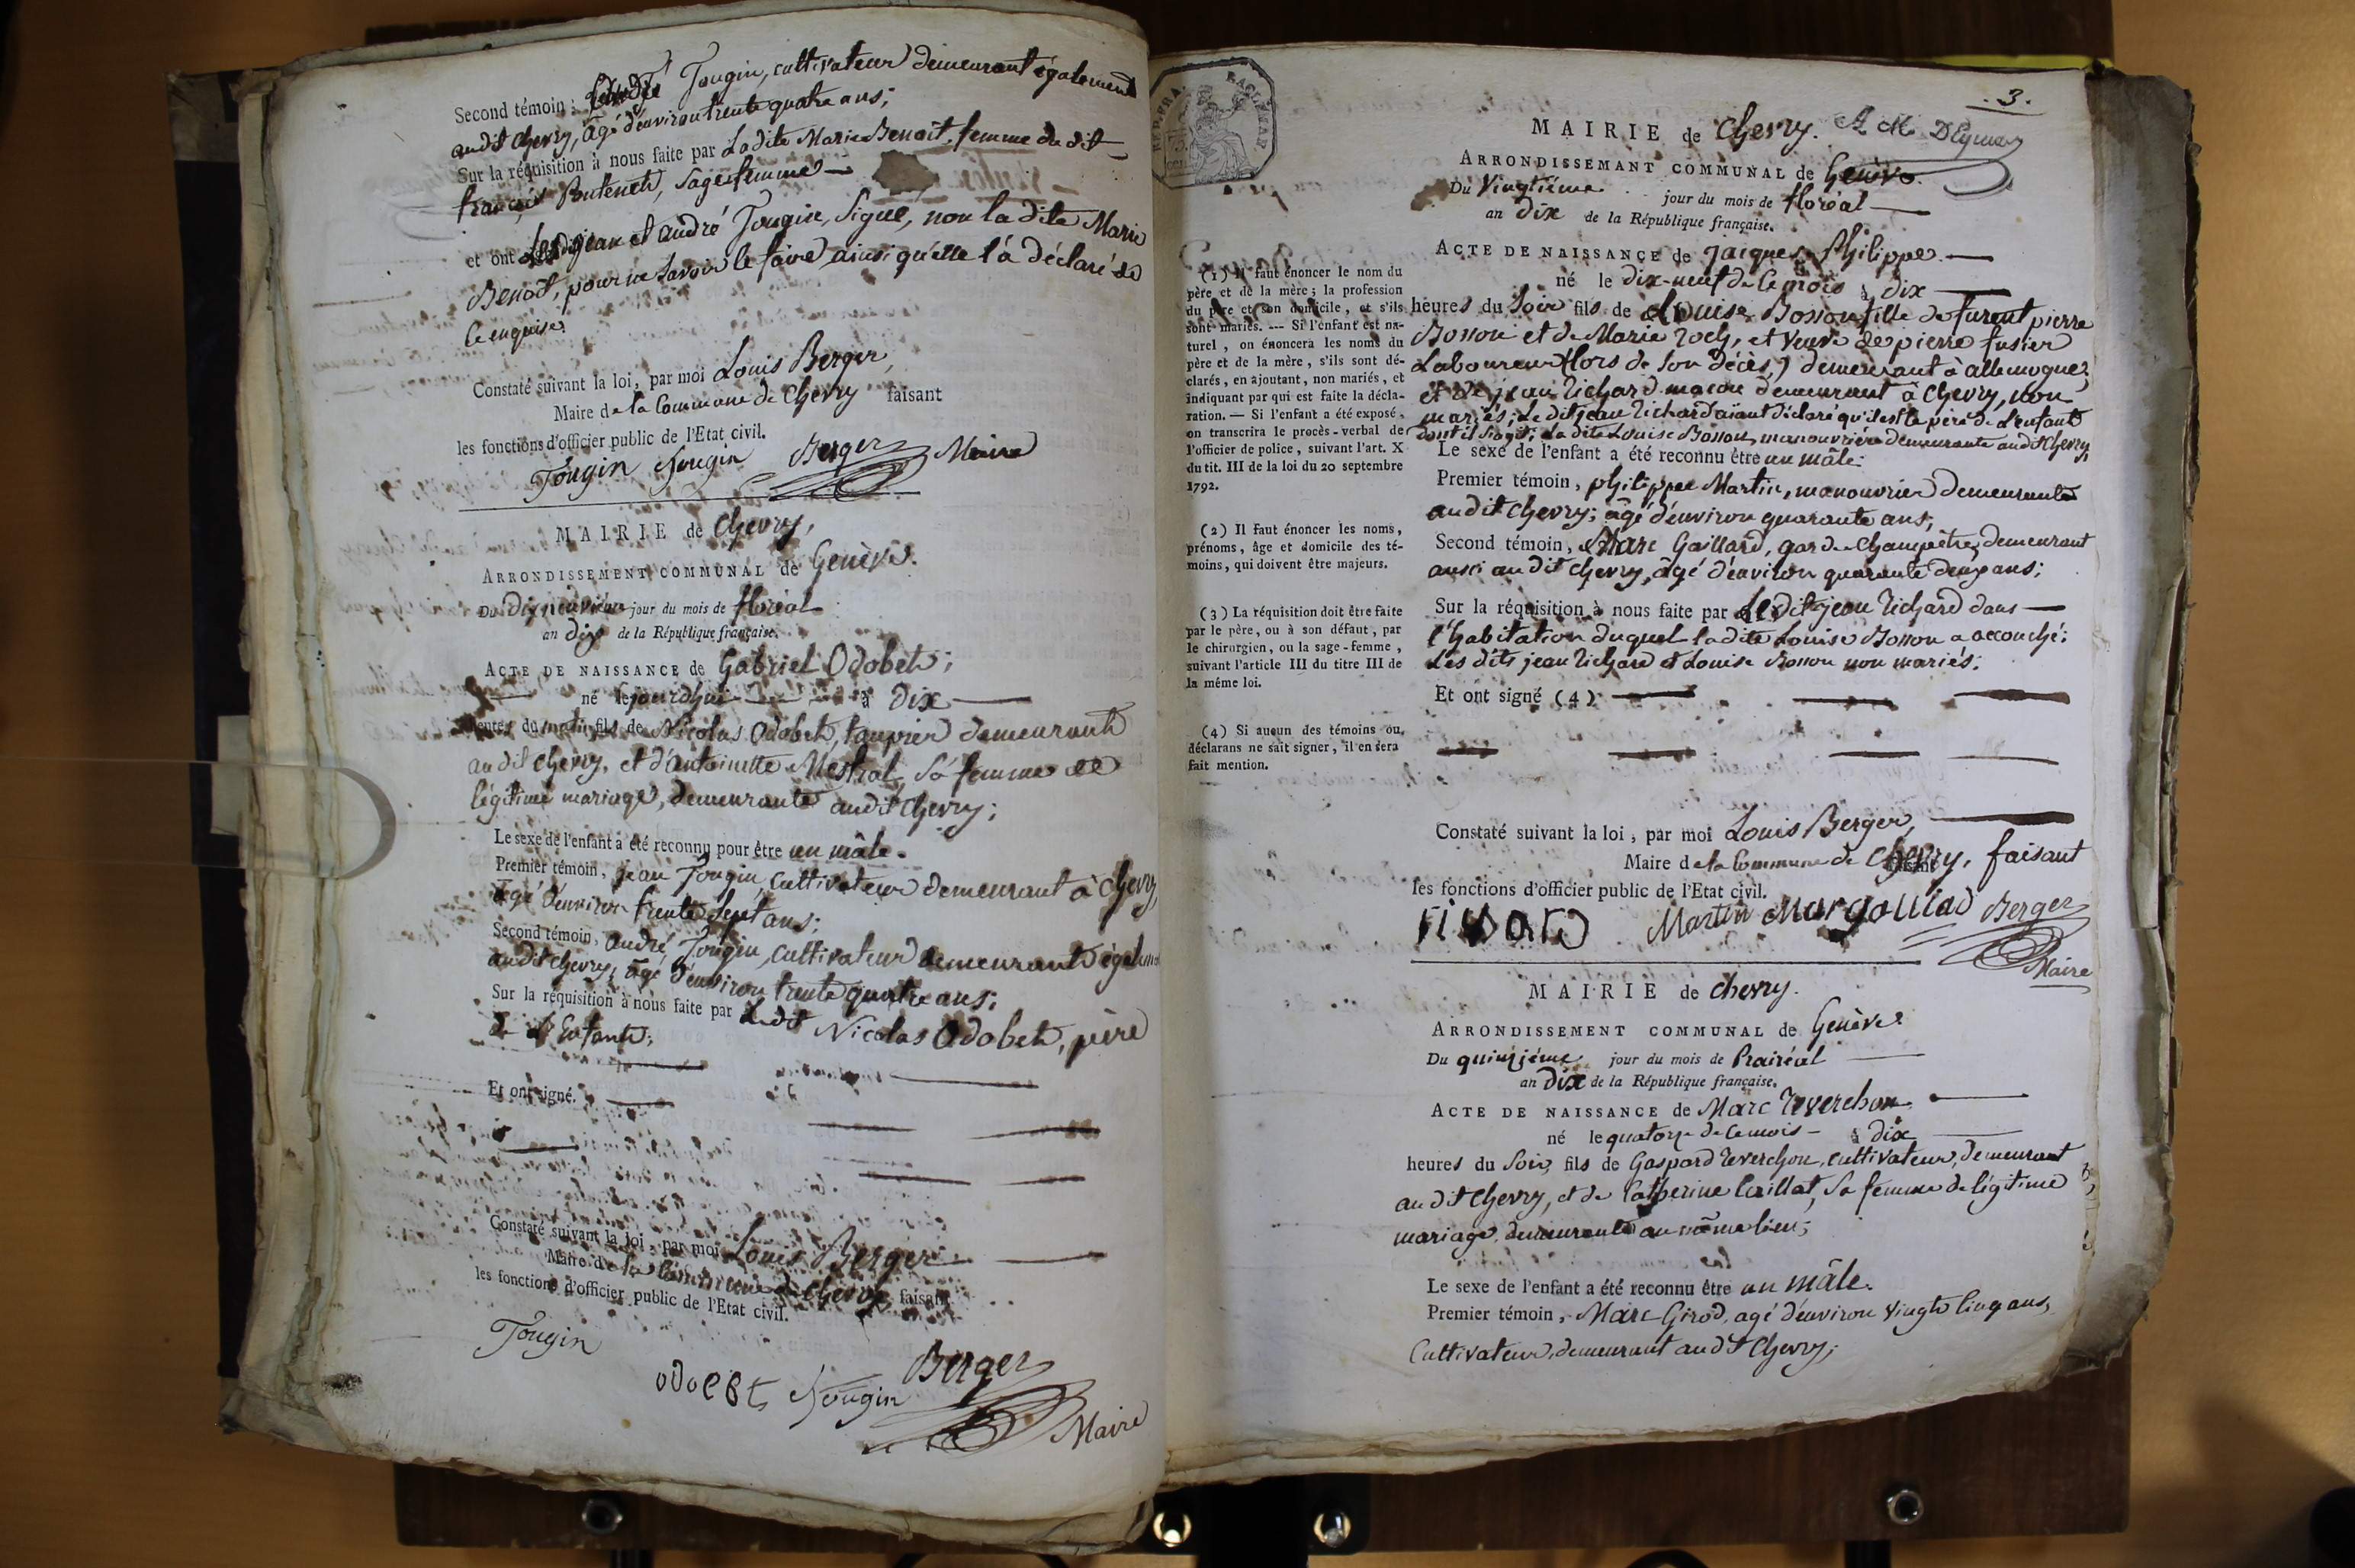 Second témoin : André Tougin, cultivateur demeurant également
audit Chevry, âgé d'environ trente quatre ans;
Sur la réquisition à nous faite par Ladite Marie Benoit, femme du dit
françois sage femme
et ont Lesdits jean et andré Tougin, Signé, non la dite Marie
Benoit, pour ne Savoir le faire ainsi qu'elle l'a déclaré de
ce enquise.
Constaté suivant la loi, par moi Louis Berger,
Maire de la Commune de Chevry faisant
les fonctions d'officier public de l'Etat civil.
Tougin Tougin Berger Maire
MAIRIE de Chevry,
ARRONDISSEMENT COMMUNAL de Genève.
Du Dixneuvième jour du mois de floréal
an dix de la République française.
ACTE DE NAISSANCE de Gabriel Odobet;
né le jourdhui à Dix
heures du matin fils de Nicolas Odobet, taupier demeurant
au dit Chevry, et d'antoinette Mestral, Sa femme de
légitime mariage, demeurante audit Chevry;
Le sexe de l'enfant a été reconnu pour être un mâle.
Premier témoin, jean Tougin, cultivateur demeurant à Chevry,
âgé d'environ trente Sept ans;
Second témoin, andré Tougin, cultivateur demeurant égalem
audit Chevry, âgé d'environ trente quatre ans;
Sur la réquisition à nous faite par Ledit Nicolas Odobet, père
de L'Enfant;
Et ont signé.
Constaté suivant la loi, par moi Louis Berger
Maire de la Commune de Chevry faisant
les fonctions d'officier public de l'Etat civil.
Tougin
odoeBt Tougin Berger
Maire
. 3 .
MAIRIE de Chevry. A M.
ARRONDISSEMANT COMMUNAL de Genève.
Du Vingtième jour du mois de floréal
an dix de la République française.
ACTE DE NAISSANCE de jacques Philippe
né le dix-neuf de ce mois à dix
heures du Soir fils de Louise Bosson fille de furent pierre
Bosson et de Marie roch, et Veuve de pierre fusier
Laboureur (lors de Son décès,) demeurant à allemogne,
et de jean Richard maçon demeurant à Chevry, non
mariés; Le dit jean Richard aïant déclaré qu'il est le père de L'enfant
dont il s'agit; La dite Louise Bosson, manouvrière demeurante audit Chevry,
Le sexe de l'enfant a été reconnu être un mâle;
Premier témoin, philippe Martin, manouvrier demeurante
audit Chevry; âgé d'environ quarante ans;
Second témoin, Marc Gaillard, garde Champêtre, demeurant
aussi au dit Chevry, âgé d'environ quarante deux ans;
Sur la réquisition à nous faite par Le dit jean Richard dans
l'habitation duquel ladite Louise Bosson a accouché;
Les dits jean Richard et Louise Bosson non mariés;
Et ont signé (4)
Constaté suivant la loi, par moi Louis Berger,
Maire de la Commune de Chevry, faisant
les fonctions d'officier public de l'Etat civil.
Martin Berger
Maire
(1) Il faut énoncer le nom du
père et de la mère; la profession
du père et son domicile, et s'ils
sont mariés. --- Si l'enfant est na-
turel, on énoncera les noms du
père et de la mère, s'ils sont dé-
clarés, en ajoutant, non mariés, et
indiquant par qui est faite la décla-
ration. — Si l'enfant a été exposé,
on transcrira le procès-verbal de
l'officier de police, suivant l'art. X
du tit. III de la loi du 20 septembre
1792.
(2) Il faut énoncer les noms,
prénoms, âge et domicile des té-
moins, qui doivent être majeurs.
(3) La réquisition doit être faite
par le père, ou à son défaut, par
le chirurgien, ou la sage-femme,
suivant l'article III du titre III de
la même loi.
(4) Si aucun des témoins ou
déclarans ne sait signer, il en sera
fait mention.
MAIRIE de Chevry.
ARRONDISSEMENT COMMUNAL de Genève
Du quinzième jour du mois de Prairéal
an Dix de la République française.
ACTE DE NAISSANCE de Marc Reverchon
né le quatorze de ce mois à dix
heures du Soir, fils de Gaspard Reverchon, cultivateur, demeurant
au dit Chevry, et de Catherine Caillat, Sa femme de légitime
mariage, demeurante au même lieu;
Le sexe de l'enfant a été reconnu être un mâle.
Premier témoin, Marc Girod, agé d'environ vingt Cinq ans,
Cultivateur, demeurant audit Chevry;